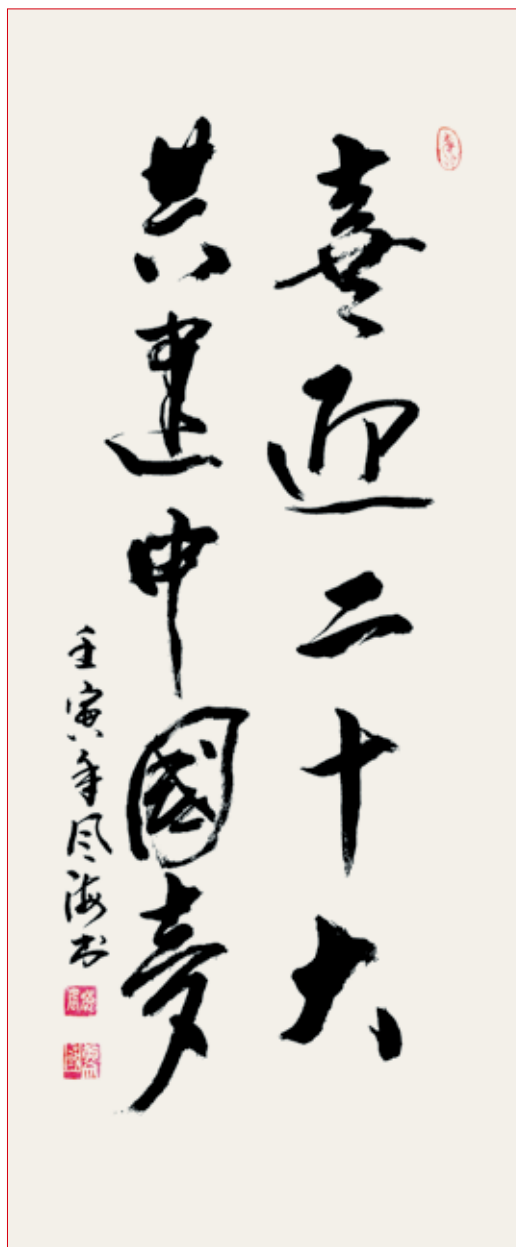 喜迎二十大
共建中國夢
壬寅年风海书